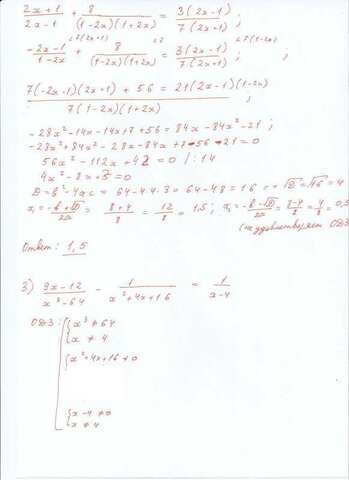 2x+1/2x-1 + 8/(1-2x)(1+2x) = 3(2x-1)/7(2x+1) ;
-2x-1/1-2x + 8/(1-2x)(1+2x) = 3(2x-1)/7(2x+1) ;
7(-2x-1)(2x+1) + 56 = 21(2x-1)(1-2x) / 7(1-2x)(1+2x) ;
-28x²-14x-14x+7+56 = 84x-84x²-21 ;
-28x²+84x²-28x-84x+7+56+21=0
56x²-112x+42=0 /:14
4x²-8x+3=0
D=b²-4ac = 64-4·4·3=64-48=16 => √D=√16=4
x₁=-b+√D/2a = 8+4/8 = 12/8 = 1,5 ; x₂=-b-√D/2a=8-4/8=4/8=0,5
(не удовлетворяет ОДЗ)
Ответ: 1,5
3) 9x-12/x³-64 - 1/x²+4x+16 = 1/x-4
ОДЗ: {x³≠64
x≠4
{x²+4x+16≠0
{x-4≠0
x≠4